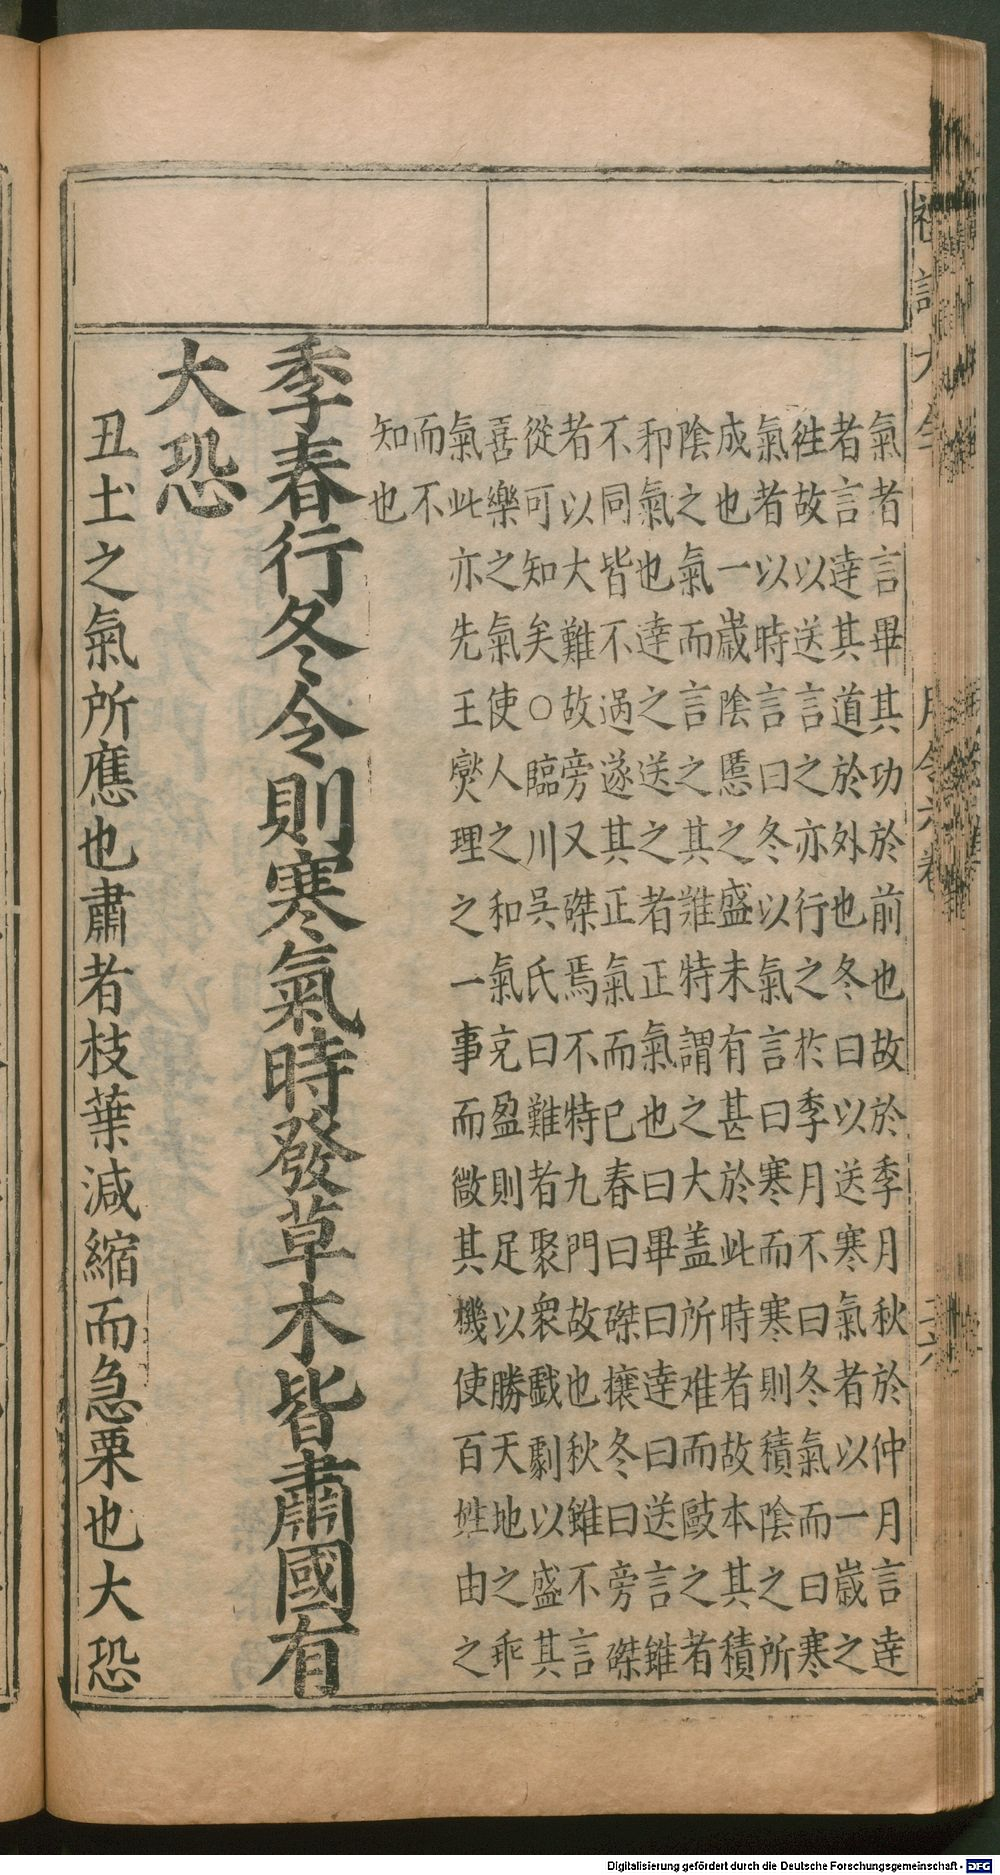 禮記大全 月令六卷
氣者言畢其功於前也故於季月秋於仲月言達
者言達其道於外也冬曰以送寒氣者以一歲之
徃故以送言之亦行之於季月不曰冬氣而曰寒
氣者以時言曰冬以氣言曰寒而寒則積陰之所
成也一歲陰慝之盛未有甚於此時者故本其積
陰之氣而言之其難特謂之大盖所难而敺之者
邪氣也達之送之者正氣也曰畢曰達曰送言雖
不同皆不過遂其正氣而已春曰磔攘冬曰旁磔
者以大難故旁又磔焉不特九門故也秋雖不言
從可知矣○臨川吳氏曰難者聚衆戱劇以盛其
喜樂之氣使人之和氣充盈則足以勝天地之乖
氣此亦先王燮理之一事而微其機使百姓由之
而不
知也
季春行冬令則寒氣時發草木皆肅國有
大恐
丑土之氣所應也肅者枝葉減縮而急栗也大恐
Digitalisierung gefördert durch die Deutsche Forschungsgemeinschaft - DFG